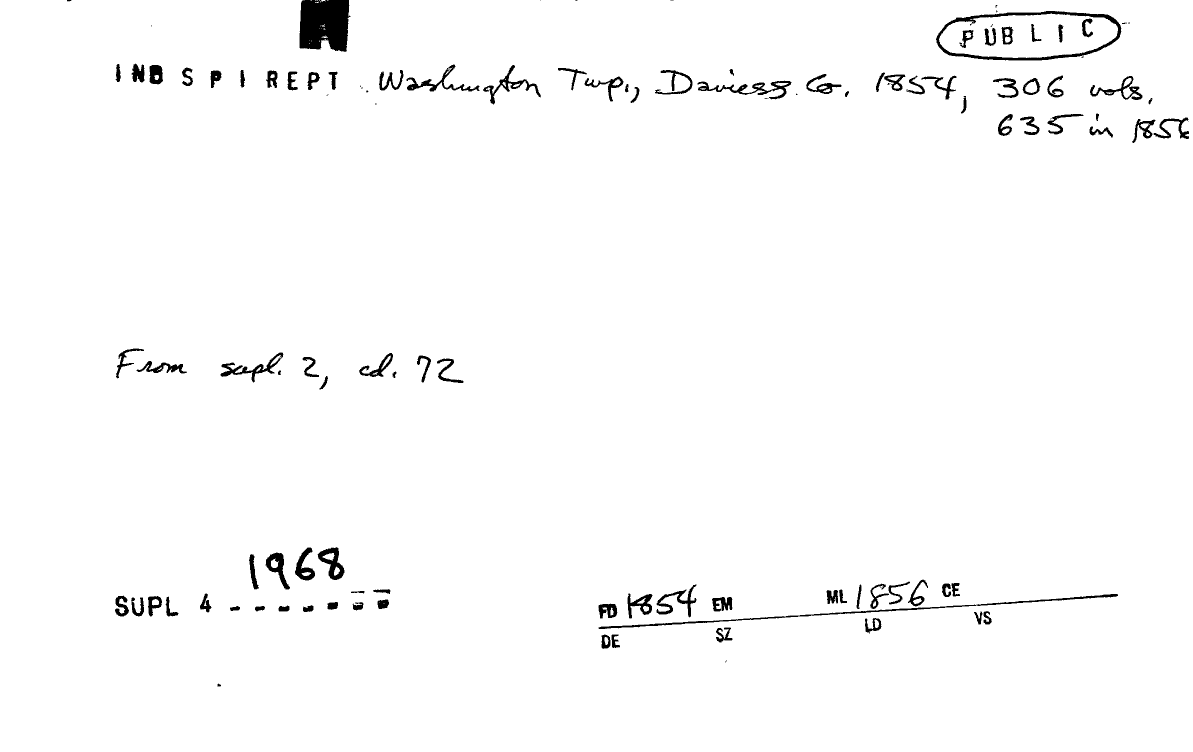 PUBLIC
IND S P I REPT Washington Twp., Daviess Co. 1854, 306 vols.
635 in 1856
From supl. 2, cd. 72
1968
SUPL 4 - - - - - - -
FD 1854 EM ML 1856 CE
DE SZ LD VS